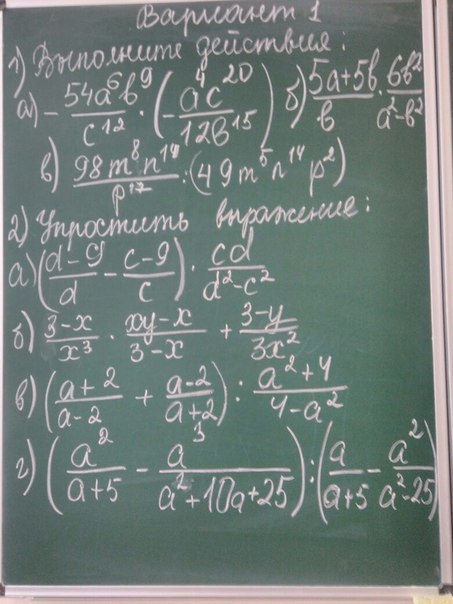 Вариант 1
1) Выполните действия:
а) -54a⁶b⁹/c¹² · (-a⁴c²⁰/12b¹⁵) б) 5a+5b/b · 6b²/a²-b²
в) 98m⁸n¹⁴/p¹⁷ : (49m⁵n¹⁴p²)
2) Упростить выражение:
а) (d-9/d - c-9/c) · cd/d²-c²
б) 3-x/x³ · xy-x/3-x + 3-y/3x²
в) (a+2/a-2 + a-2/a+2) : a²+4/4-a²
г) (a²/a+5 - a³/a²+10a+25) : (a/a+5 - a²/a²-25)